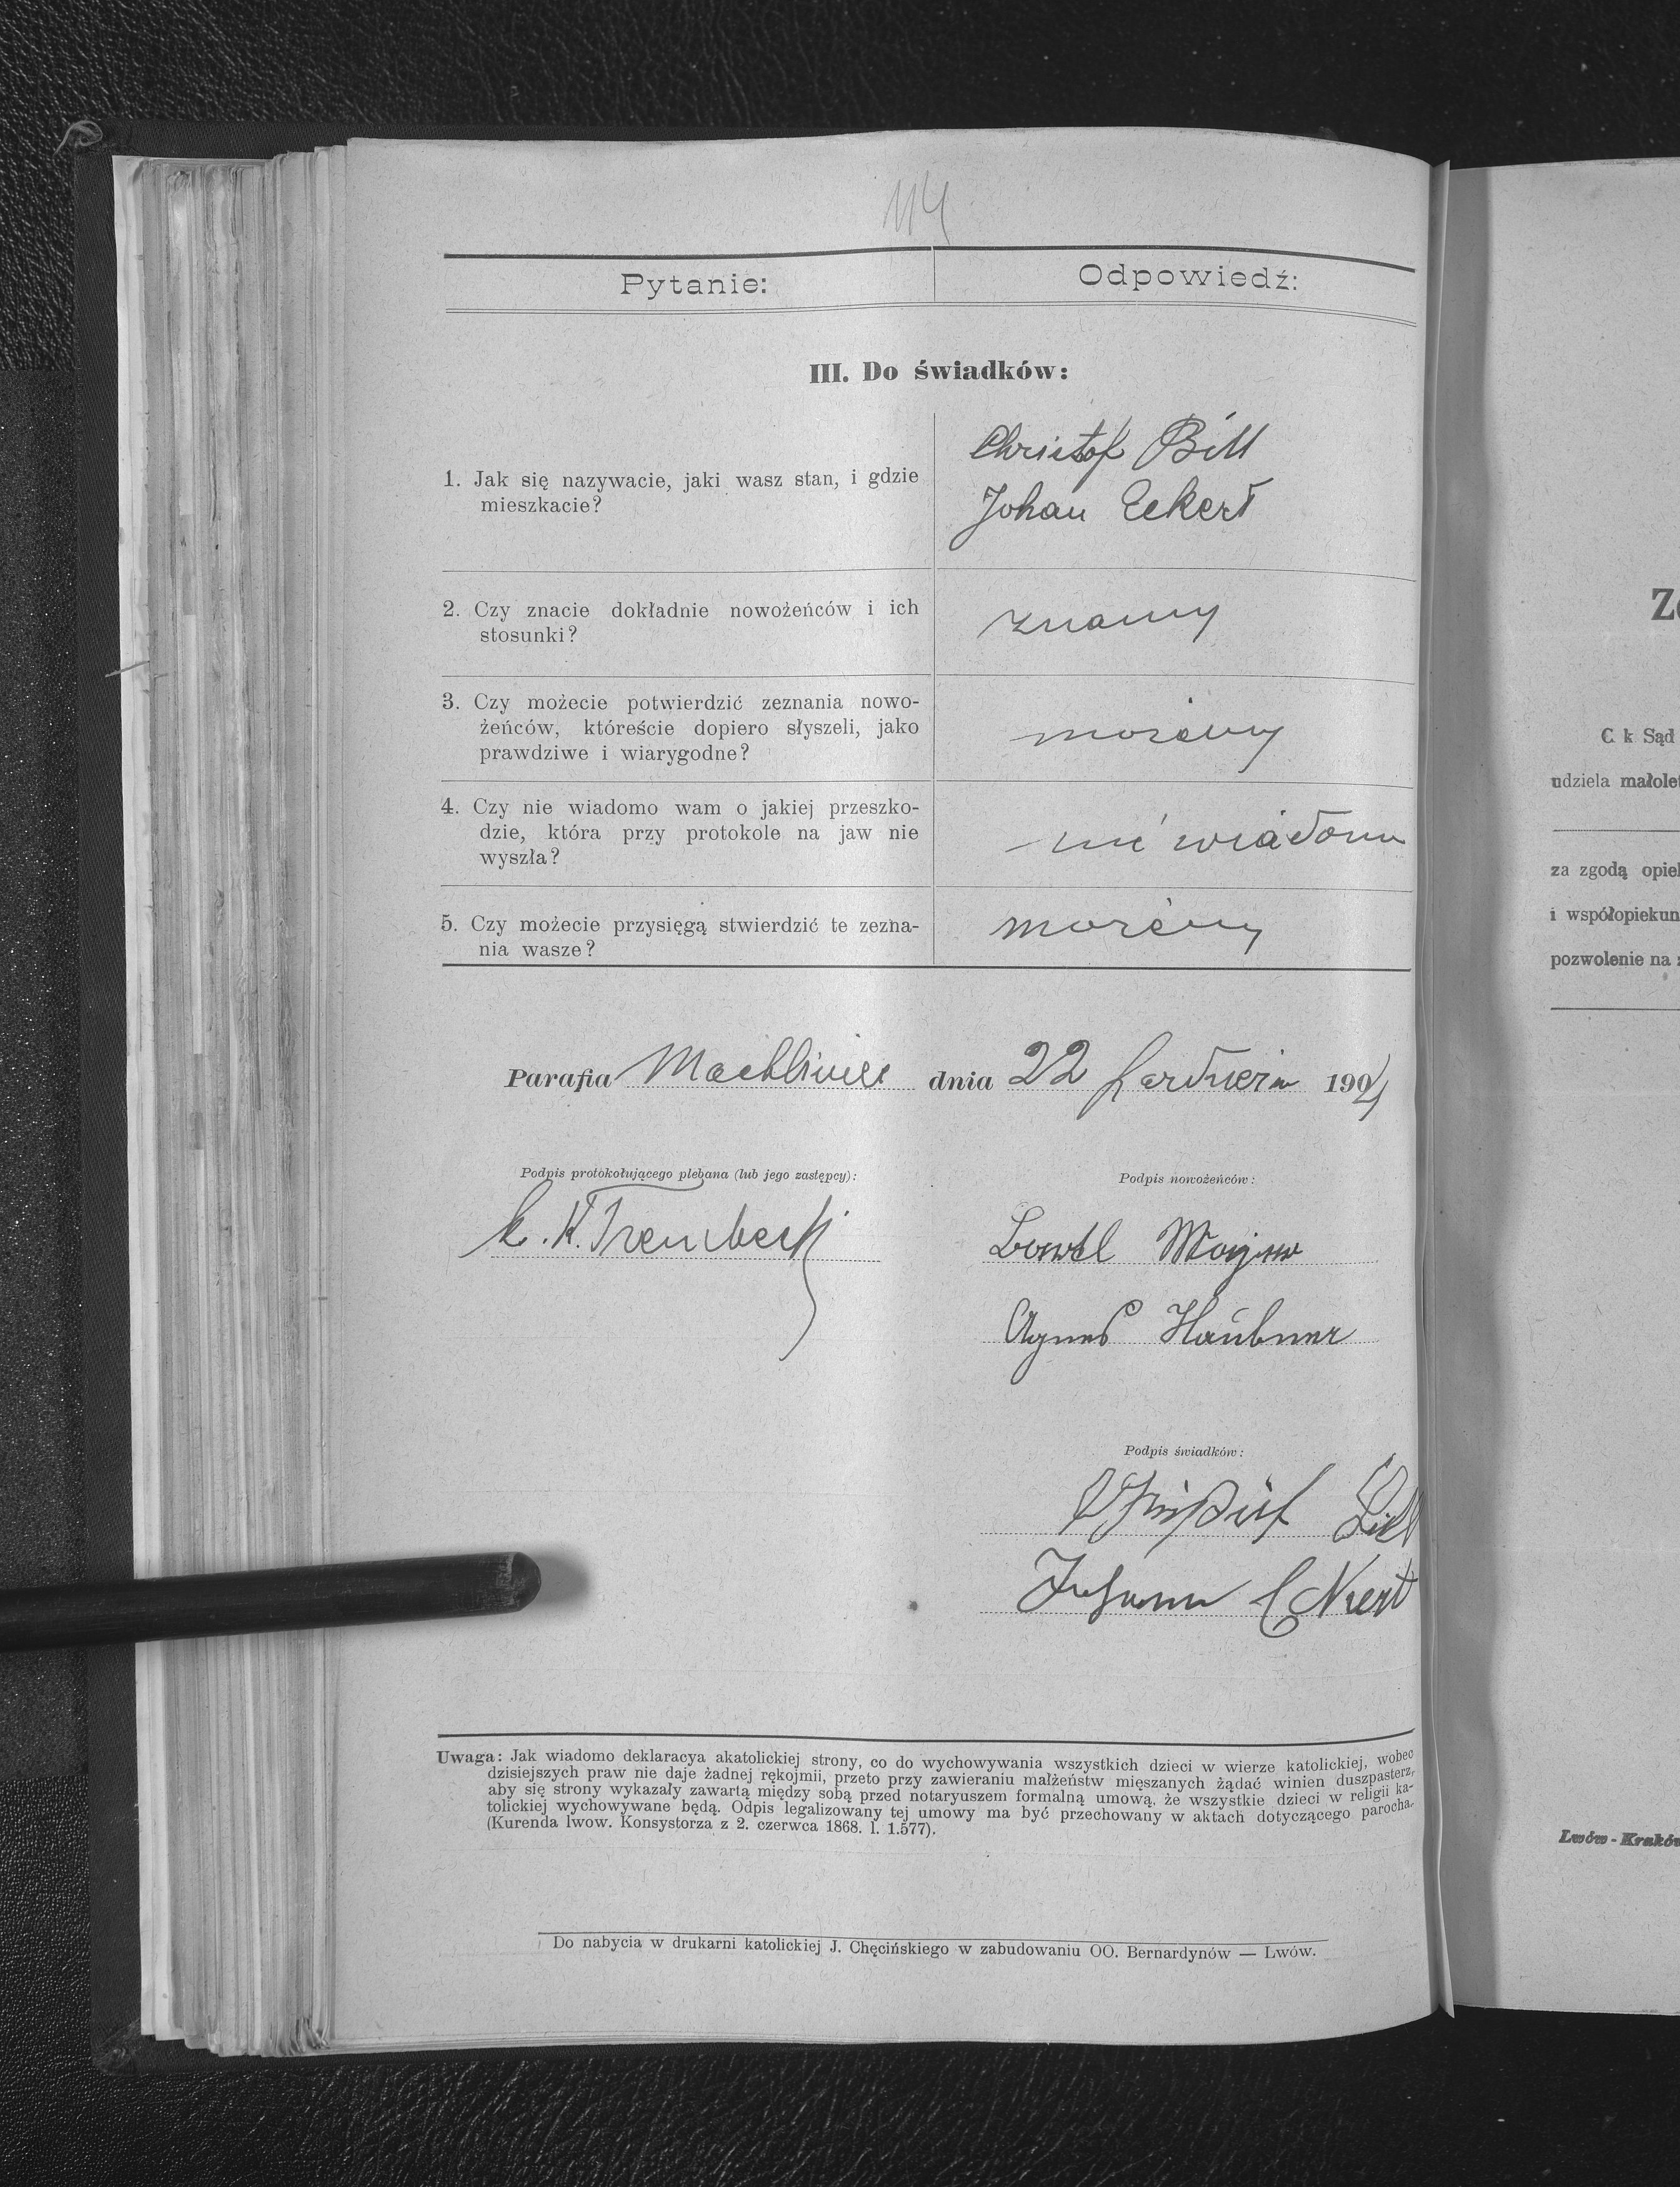 114
Pytanie:
Odpowiedź:
III. Do świadków:
1. Jak się nazywacie, jaki wasz stan, i gdzie
mieszkacie?
Christof Bill
Johan Eckert
2. Czy znacie dokładnie nowożeńców i ich
stosunki?
znamy
3. Czy możecie potwierdzić zeznania nowo-
żeńców, któreście dopiero słyszeli, jako
prawdziwe i wiarygodne?
możemy
4. Czy nie wiadomo wam o jakiej przeszko-
dzie, która przy protokole na jaw nie
wyszła?
nie wiadomo
5. Czy możecie przysięgą stwierdzić te zezna-
nia wasze?
możemy
Parafia Machliniec dnia 22 190
Podpis protokołującego plebana (lub jego zastępcy):
Podpis nowożeńców:
Agnes Haubner
Podpis świadków:
Johann Eckert
Uwaga: Jak wiadomo deklaracya akatolickiej strony, co do wychowywania wszystkich dzieci w wierze katolickiej, wobec
dzisiejszych praw nie daje żadnej rękojmii, przeto przy zawieraniu małżeństw mięszanych żądać winien duszpasterz,
aby się strony wykazały zawartą między sobą przed notaryuszem formalną umową, że wszystkie dzieci w religii ka-
tolickiej wychowywane będą. Odpis legalizowany tej umowy ma być przechowany w aktach dotyczącego parocha.
(Kurenda lwow. Konsystorza z 2. czerwca 1868. l. 1.577).
Do nabycia w drukarni katolickiej J. Chęcińskiego w zabudowaniu OO. Bernardynów — Lwów.
C. k Sąd
udziela małolet
za zgodą opiek
i współopiekun
pozwolenie na
Lwów - Kraków